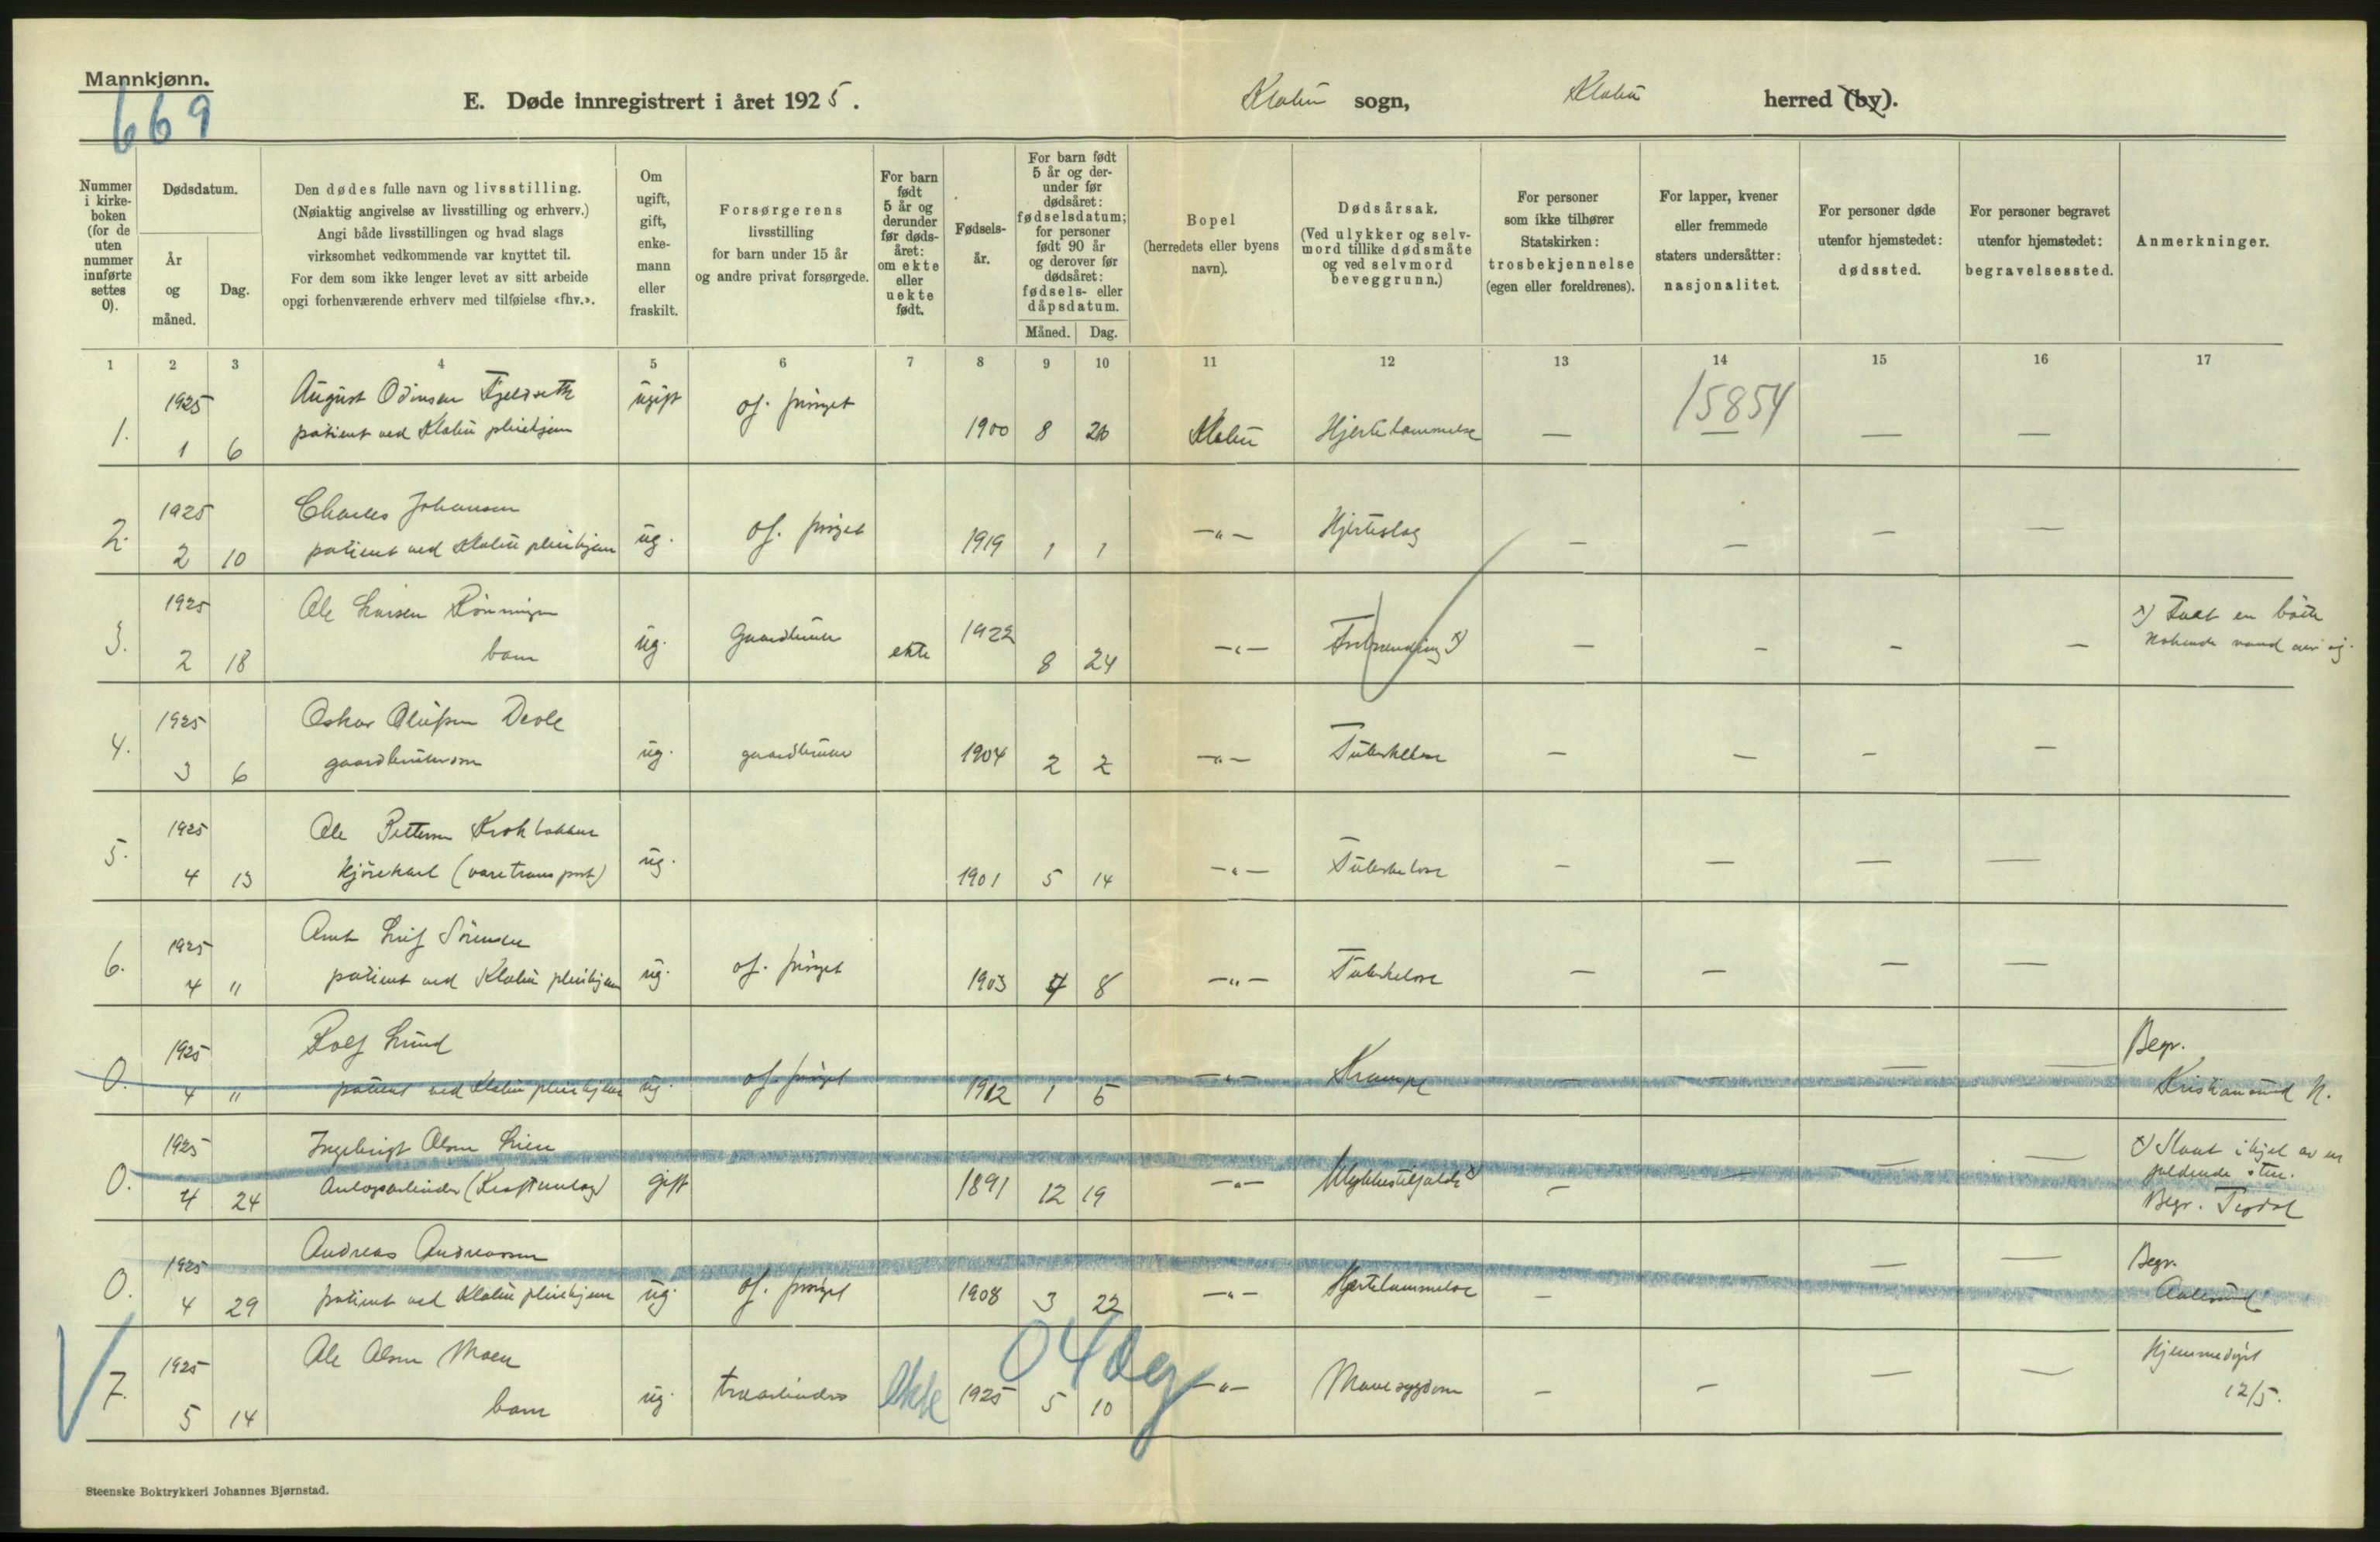 Mannkjønn.
669
E. Døde innregistrert i året 1925.
Klæbu sogn, Klæbu herred (by).
Nummer
i kirke-
boken
(for de
uten
nummer
innførte
settes
0).
Dødsdatum.
År
og
måned.
Dag.
Den dødes fulle navn og livsstilling.
(Nøiaktig angivelse av livsstilling og erhverv.)
Angi både livsstillingen og hvad slags
virksomhet vedkommende var knyttet til.
For dem som ikke lenger levet av sitt arbeide
opgi forhenværende erhverv med tilføielse «fhv.».
Om
ugift,
gift,
enke-
mann
eller
fraskilt.
Forsørgerens
livsstilling
for barn under 15 år
og andre privat forsørgede.
For barn
født
5 år og
derunder
før døds-
året:
om ekte
eller
uekte
født.
Fødsels-
år.
For barn født
5 år og der-
under før
dødsåret:
fødselsdatum;
for personer
født 90 år
og derover før
dødsåret:
fødsels- eller
dåpsdatum.
Måned. Dag.
Bopel
(herredets eller byens
navn).
Dødsårsak.
(Ved ulykker og selv-
mord tillike dødsmåte
og ved selvmord
beveggrunn.)
For personer
som ikke tilhører
Statskirken:
trosbekjennelse
(egen eller foreldrenes).
For lapper, kvener
eller fremmede
staters undersåtter:
nasjonalitet.
For personer døde
utenfor hjemstedet:
dødssted.
For personer begravet
utenfor hjemstedet:
begravelsessted.
Anmerkninger.
1 2 3 4 5 6 7 8 9 10 11 12 13 14 15 16 17
15854
1925 August Odinsen Fjeldseth ugift of. forsörget
1. 1 6 patient ved Klæbu pleiehjem 1900 8 20 Klæbu Hjertelammelse — — — —
1925 Charles Johansen
2. 2 10 patient ved Klæbu pleiehjem ug. of. forsörget 1919 1 1 —"— Hjerteslag — — — —
1925 Ole Larsen Rönningen x) Faat en bötte
3. 2 18 barn ug. Gaardbruker ekte 1922 8 24 —"— Forbrænding x) — — — — kokende vand over sig.
1925 Oskar Olufsen Devle
4. 3 6 gaardbrukersön ug. gaardbruker 1904 2 2 —"— Tuberkelose — — — —
1925 Ole Pettersen Krokbakken
5. 4 13 Kjörekarl (varetransport) ug. 1901 5 14 —"— Tuberkelose — — — —
1925 Arnt Leif Sörensen
6. 4 " patient ved Klæbu pleiehjem ug. of. forsörget 1903 8 —"— Tuberkelose — — — —
1925 Rolf Lund Begr.
0. 4 " patient ved Klæbu pleiehjem ug. of. forsörget 1912 1 5 —"— Krampe — — — — Kristiansund N.
1925 Ingebrigt Olsen Lien x) Slaat ihjel av en
0. 4 24 Anlægsarbeider (Kraftanlæg) gift 1891 12 19 —"— Ulykkestilfælde x) — — — — faldende sten.
Begr. Tydal
1925 Andreas Andreassen Begr.
0. 4 29 patient ved Klæbu pleiehjem ug. of. forsörget 1908 3 22 —"— Hjertelammelse — — — — Aalesund
04dg
1925 Ole Olsen Moen Hjemmedöpt
7. 5 14 barn ug. træarbeider ekte 1925 5 10 —"— Mavesygdom — — — — 12/5.
Steenske Boktrykkeri Johannes Bjørnstad.